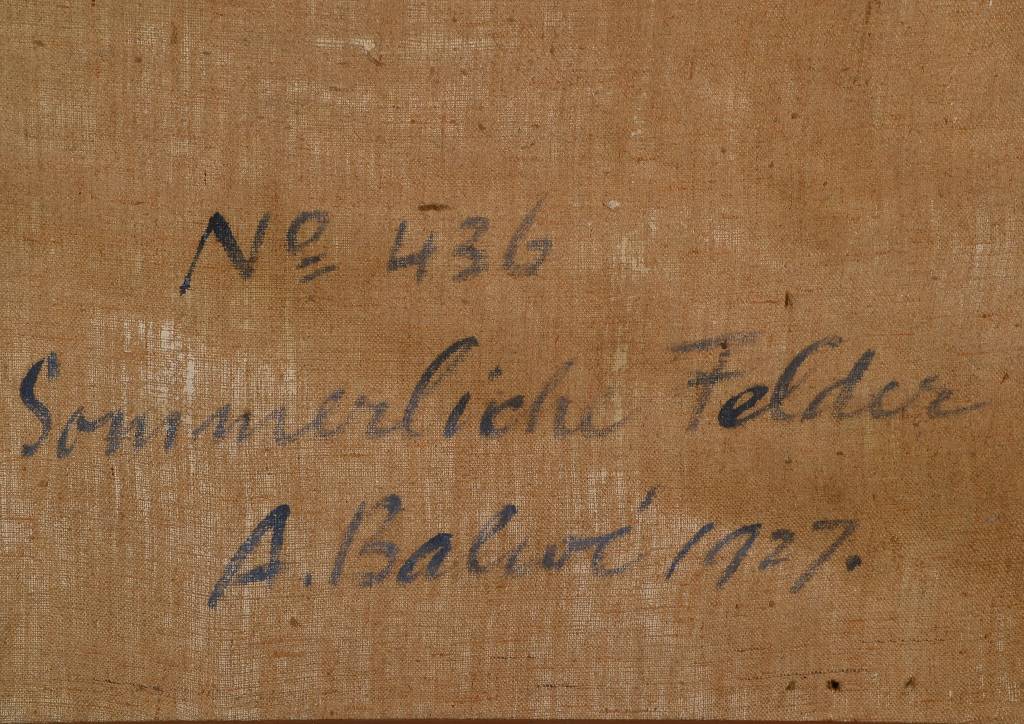 Nº 436
Sommerliche Felder
A. Balwé 1927.